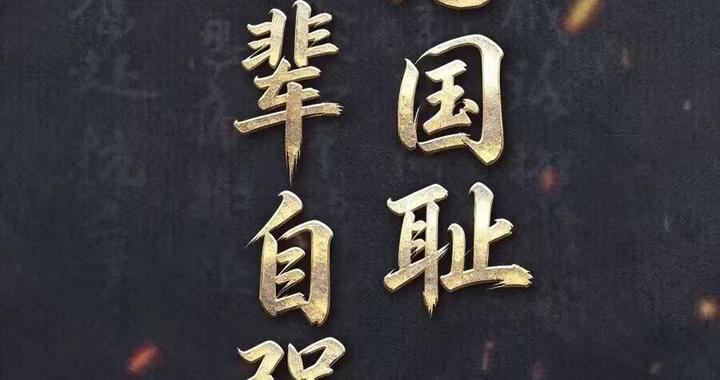 国耻
辈自强